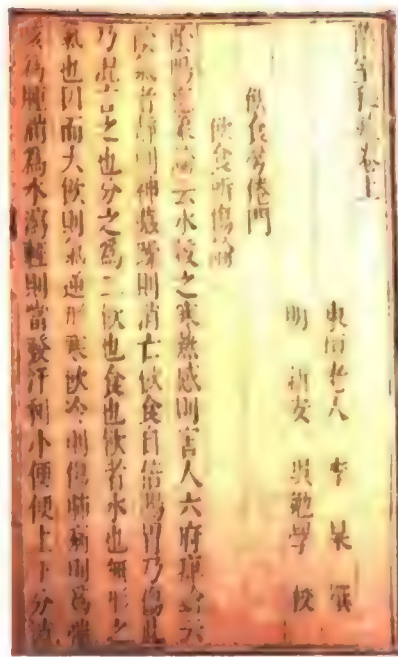 蘭室秘藏卷上
東垣老人 李杲 撰
明 新安 吳勉學 校
飲食勞倦門
飲食所傷論
陰陽應象論云水穀之寒熱感則害人六府痺論云
陰氣者靜則神藏躁則消亡飲食自倍腸胃乃傷此
乃混言之也分之為二飲也食也飲者水也無形之
氣也因而大飲則氣逆形寒飲冷則傷肺病則為喘
咳為腫滿為水瀉輕則當發汗利小便使上下分消